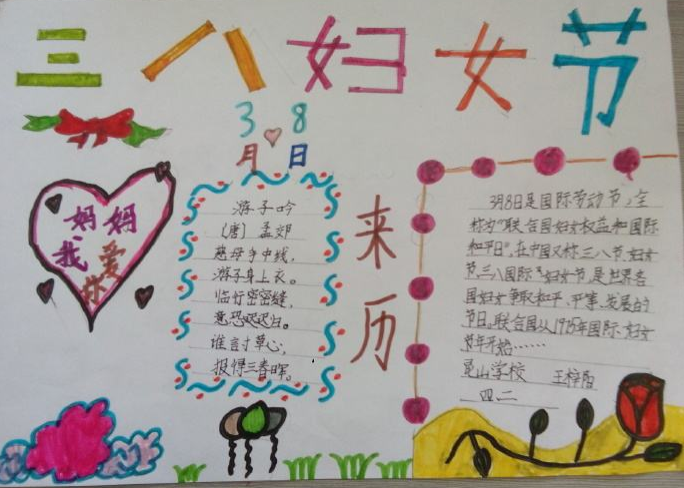 三八妇女节
3月8日
妈妈
我爱你
游子吟
(唐)孟郊
慈母手中线,
游子身上衣。
临行密密缝,
意恐迟迟归。
谁言寸草心,
报得三春晖。
来历
3月8日是国际劳动节,全
称为"联合国妇女权益和国际
和平日",在中国又称三八节、妇女
节、三八国际妇女节。是世界各
国妇女争取和平、平等、发展的
节日。联合国从1975年国际妇女
节年开始……
学校
四二